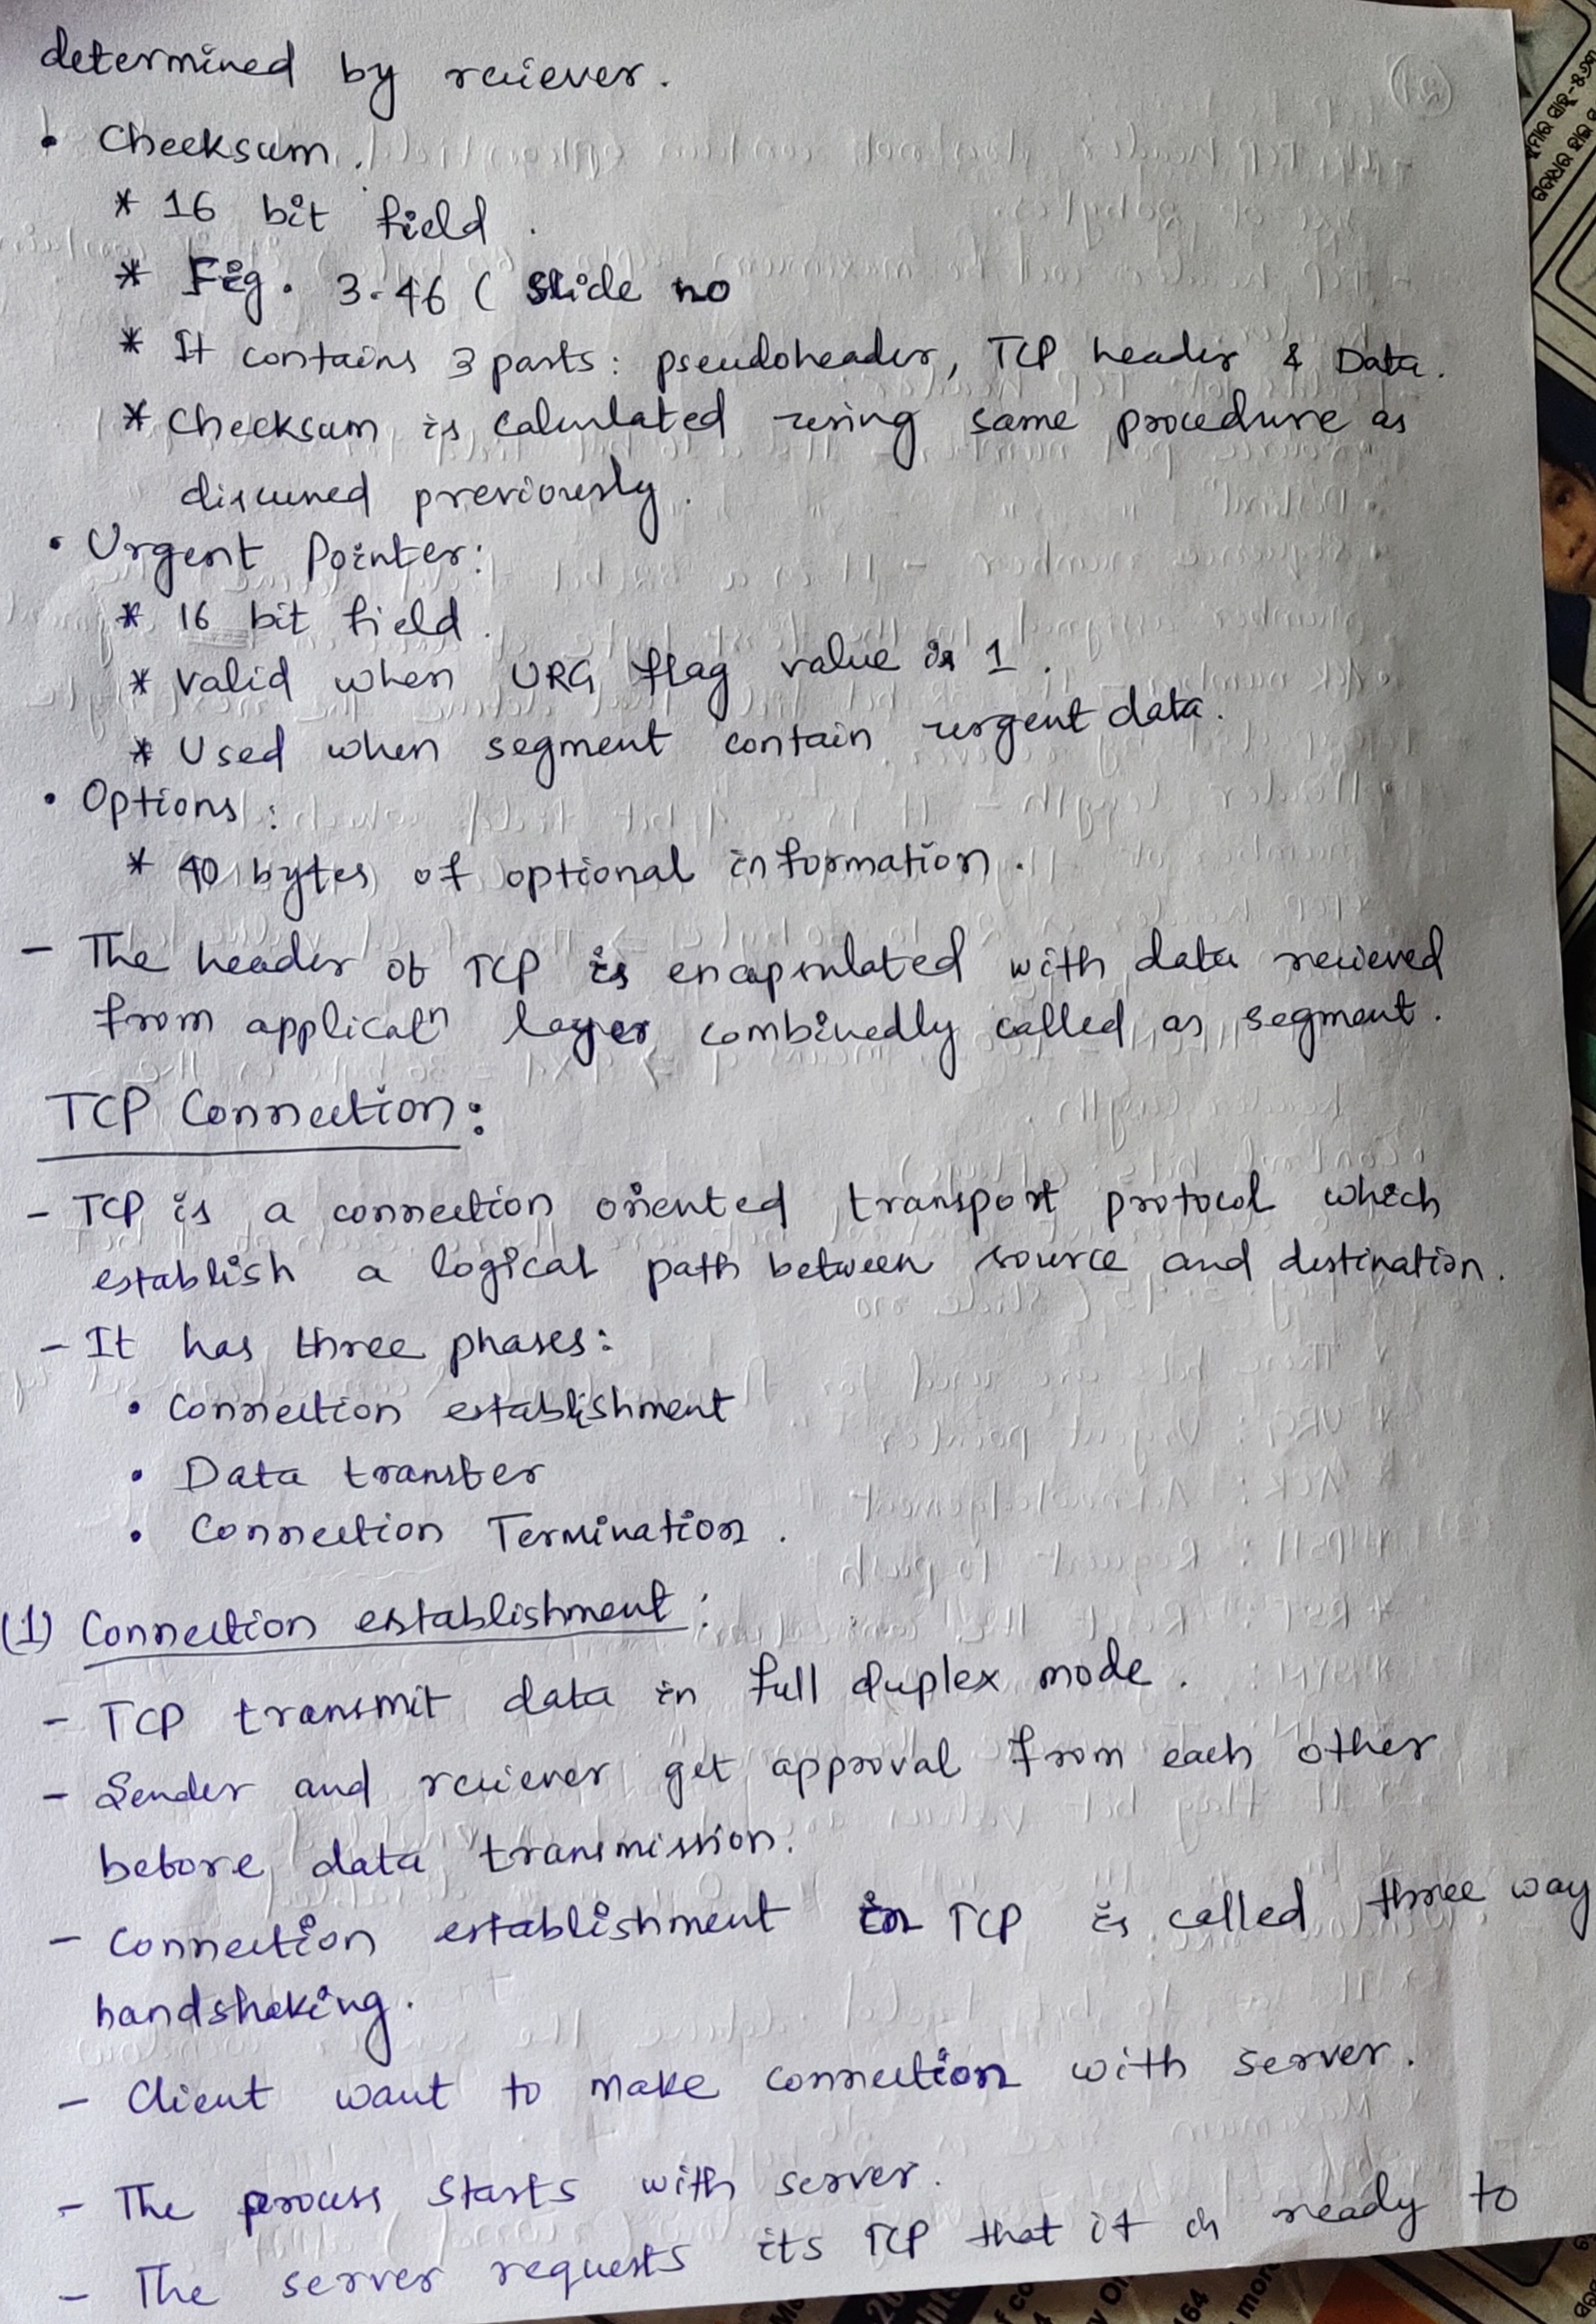 determined by reciever.
• Checksum.
* 16 bit field.
* Fig. 3.46 ( Slide no
* It contains 3 parts: pseudoheader, TCP header & Data.
* Checksum is calculated using same procedure as
discussed previously.
• Urgent Pointer:
* 16 bit field.
* Valid when URG flag value is 1.
* Used when segment contain urgent data.
• Options:
* 40 bytes of optional information.
- The header of TCP is encapsulated with data recieved
from applicatⁿ layer combinedly called as segment.
TCP Connection:
- TCP is a connection oriented transport protocol which
establish a logical path between source and destination.
- It has three phases:
• Connection establishment
• Data transfer
• Connection Termination.
(1) Connection establishment:
- TCP transmit data in full duplex mode.
- Sender and reciever get approval from each other
before data transmission.
- Connection establishment in TCP is called three way
handshaking.
- Client want to make connection with server.
- The process starts with server.
- The server requests its TCP that it is ready to